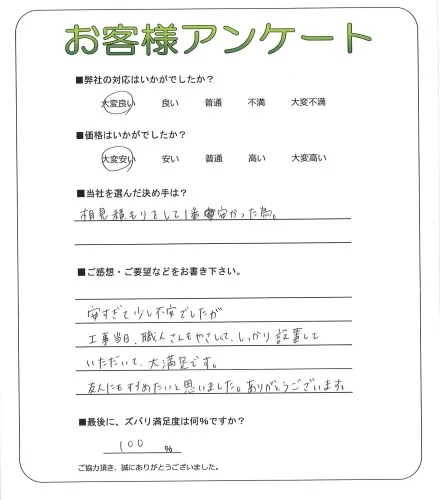 お客様アンケート
■弊社の対応はいかがでしたか？
大変良い 良い 普通 不満 大変不満
■価格はいかがでしたか？
大変安い 安い 普通 高い 大変高い
■当社を選んだ決め手は？
相見積もりをして1番安かった為。
■ご感想・ご要望などをお書き下さい。
安すぎて少し不安でしたが
工事当日、職人さんもやさしくて、しっかり設置して
いただいて、大満足です。
友人にもすすめたいと思いました。ありがとうございます。
■最後に、ズバリ満足度は何%ですか？
100 %
ご協力頂き、誠にありがとうございました。